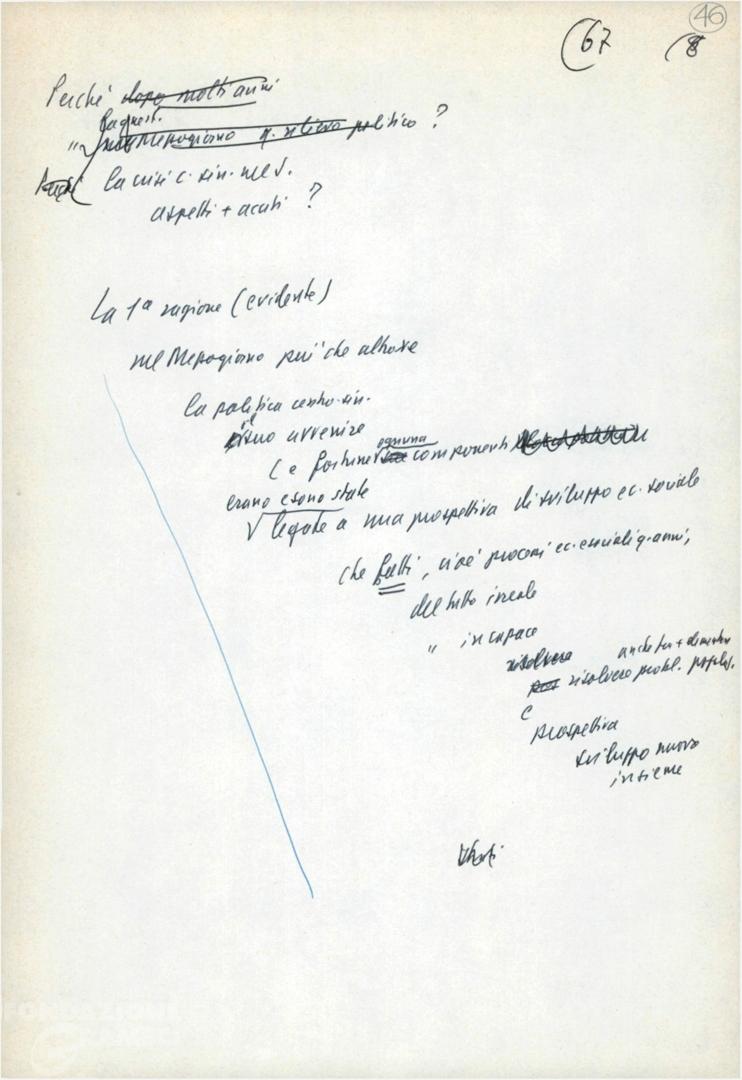 46
67 8
Perché dopo molti anni
la quest.
" nel Mezzogiorno q. rilievo politico ?
Perché la crisi c. sin. nel S.
aspetti + acuti ?
La 1ª ragione (evidente)
nel Mezzogiorno piu' che altrove
la politica centro-sin.
il suo avvenire
le fortune ognuna componenti
erano e sono state
legate a una prospettiva di sviluppo ec. sociale
che fatti, cioé processi ec. e sociali q. anni,
del tutto irreale
" incapace
risolvere anche
risolvere probl. popolaz.
e
prospettiva
sviluppo nuovo
insieme
FONDAZIONE
GRAMSCI